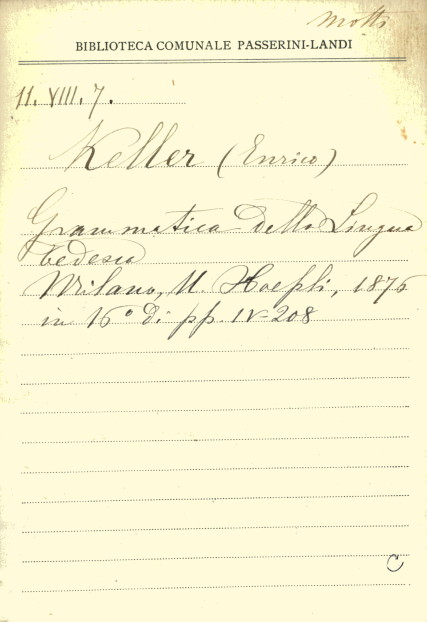 Motti
BIBLIOTECA COMUNALE PASSERINI-LANDI
11. VIII. 7.
Keller (Enrico)
Grammatica della Lingua
tedesca
Milano, U. Hoepli, 1876
in 16° di pp. IV-208
C